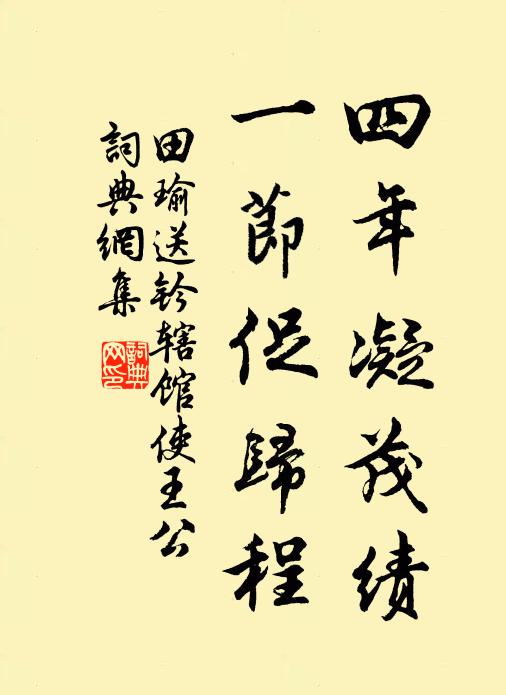 四年凝茂绩
一節促歸程
田瑜送鈐轄館使王公
詞典網集
詞典网印